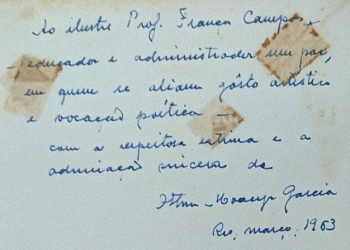 Ao ilustre Prof. França Campos,
— educador e administrador sem par,
em quem se aliam gôsto artístico
e vocação poética —
com a respeitosa estima e a
admiração sincera de
Moacyr Garcia
Rio, março, 1963